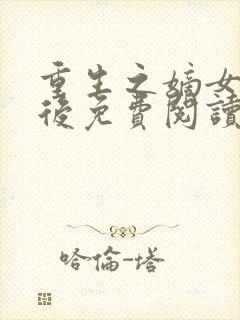 重生之嫡女
後免費閱讀
哈倫-塔